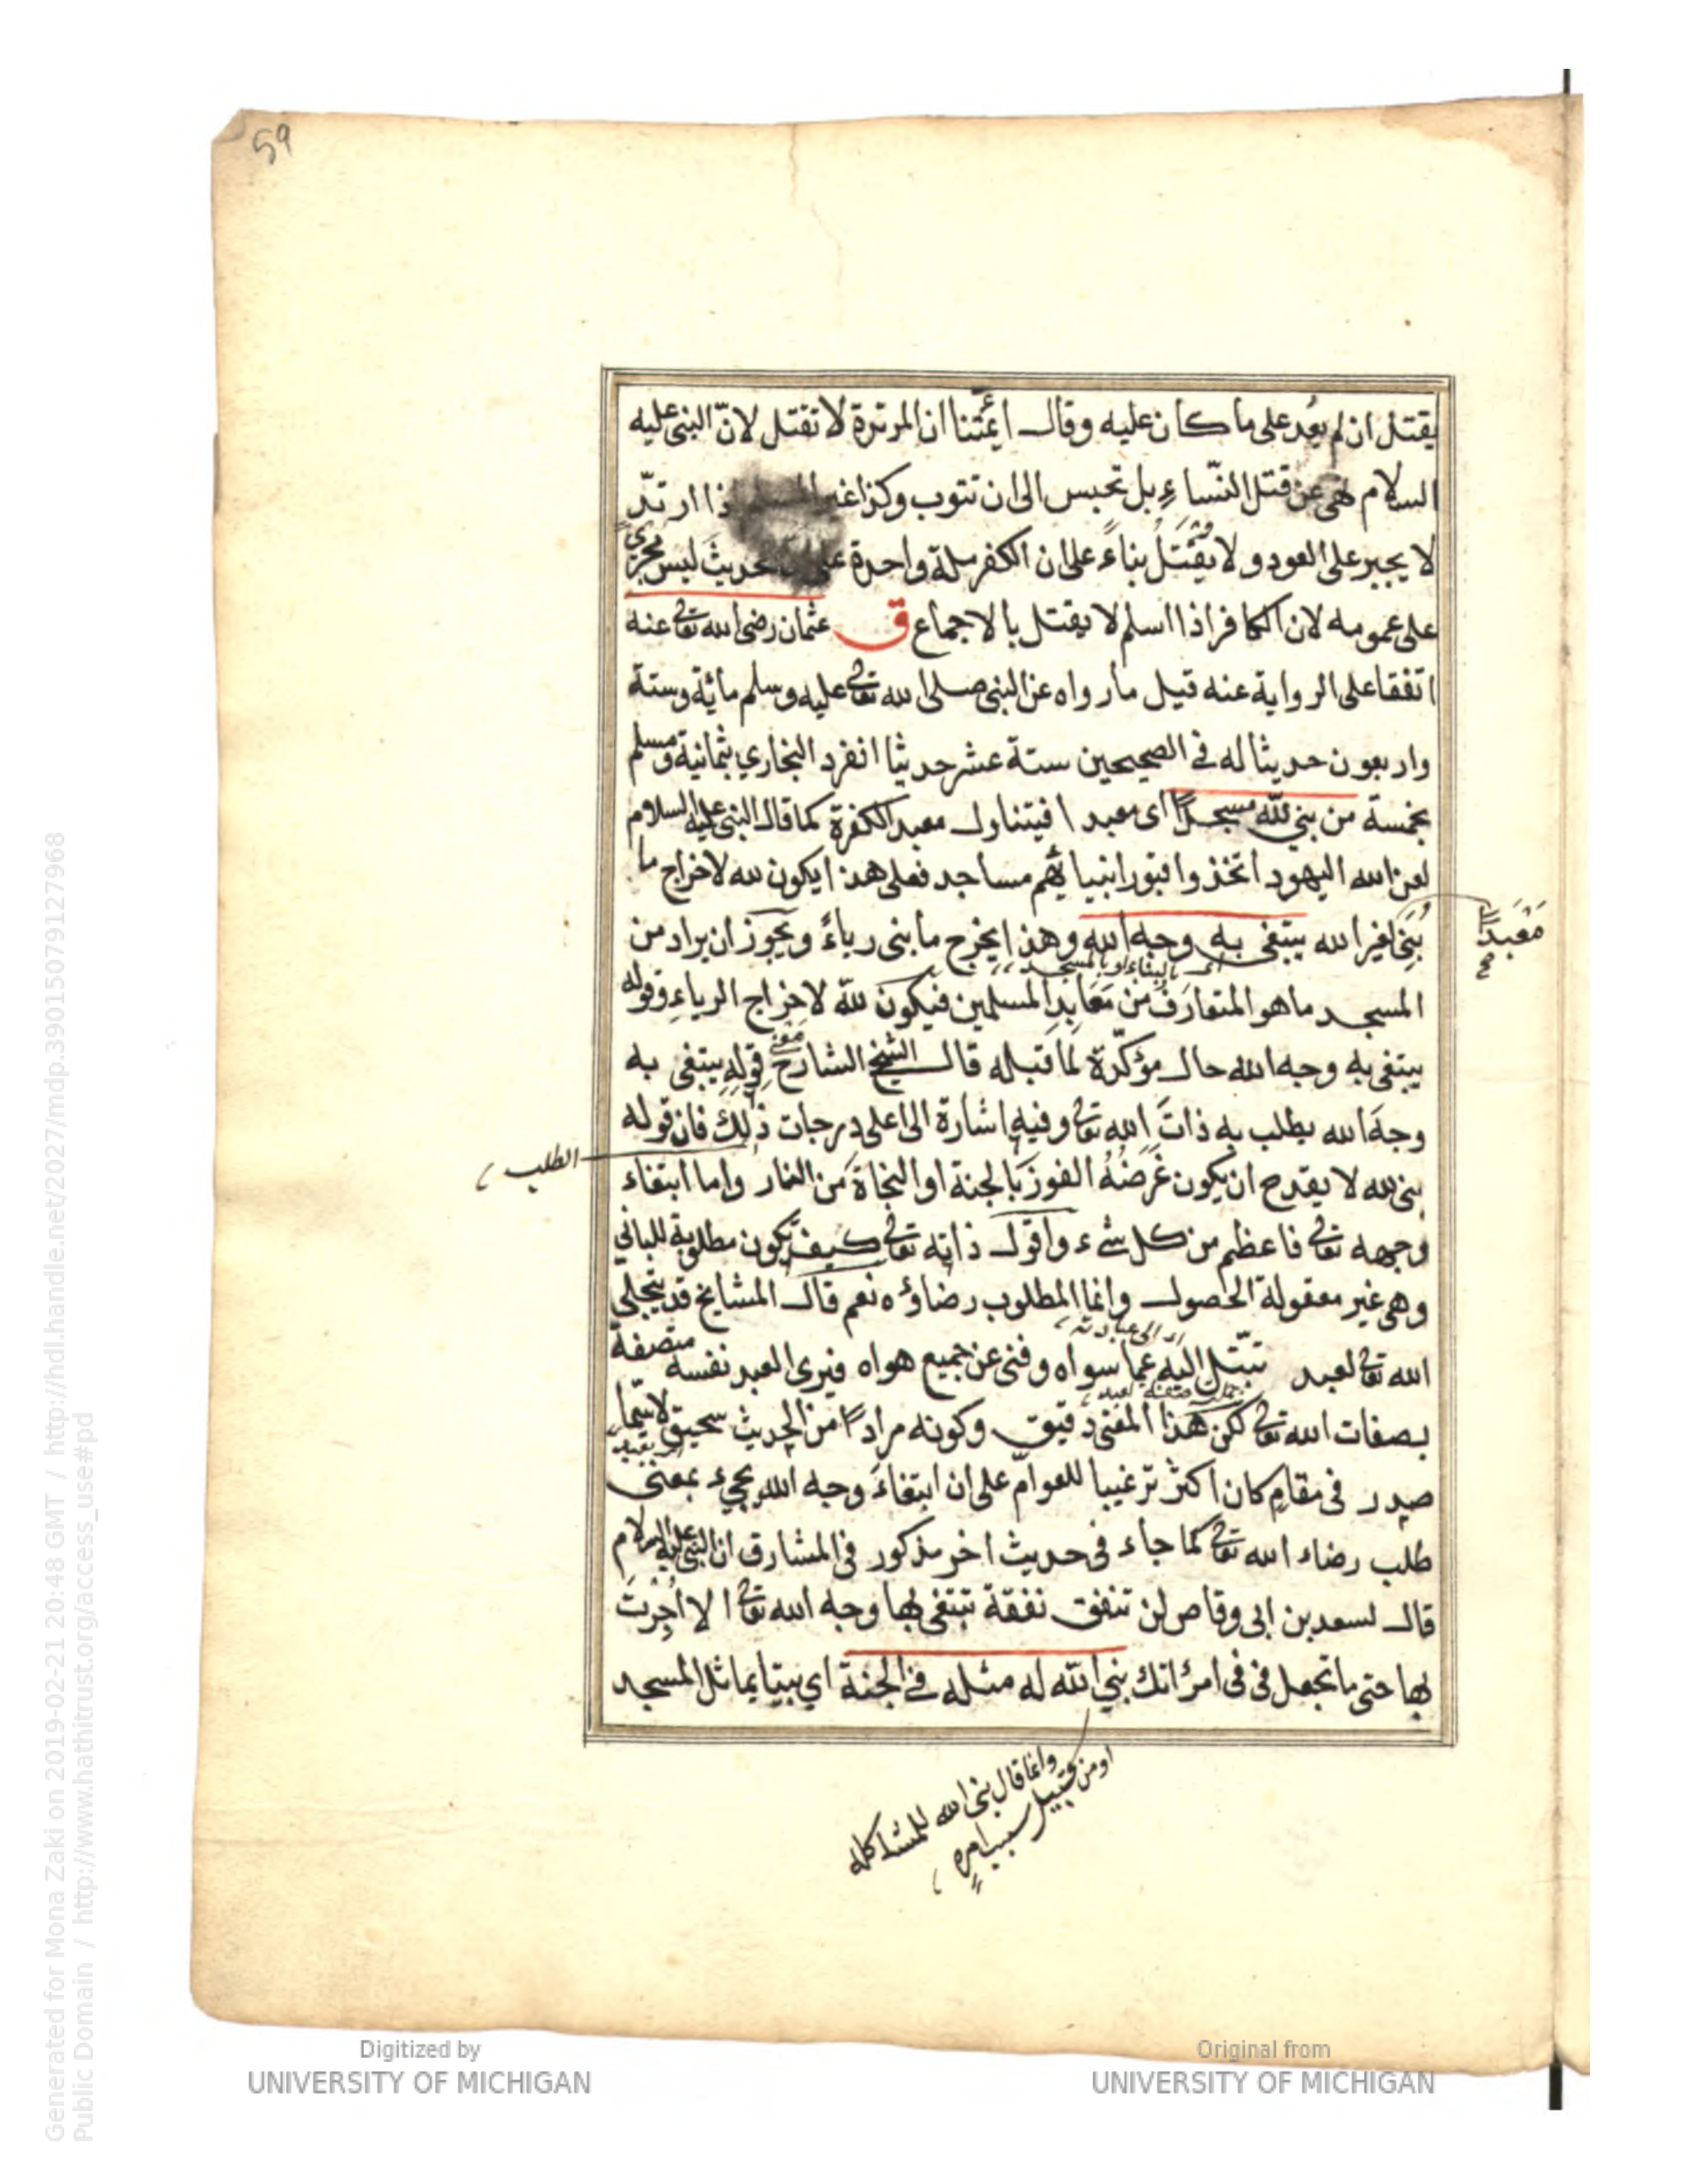 59
يقتل ان لم يعُد على ما كان عليه وقال ائمّتنا ان المرتدة لا تقتل لانّ النبى عليه
السلام نهى عن قتل النّساءِ بل تحبس الى ان تتوب وكذا غير ارتدّ
لا يجبر على العود ولا يُقْتَلُ بناءً على ان الكفر ملة واحدة الحديثَ ليس مجرىً
على عمومه لان الكافر اذا اسلم لا يقتل بالاجماع ق عثمان رضى الله تعالى عنه
اتفقا على الرواية عنه قيل ما رواه عن النبى صلى الله تعالى عليه وسلم مائة وستة
واربعون حديثا له فى الصحيحين ستة عشر حديثا انفرد البخاري بثمانية ومسلم
بخمسة من بني للّه مسجدًا اى معبدا فيتناول معبد الكفرة كما قال النبى عليه السلام
لعن الله اليهود اتخذوا قبور انبيائهم مساجد فعلى هذا يكون لله لاخراج ما
بُنِىَ لغير الله يبتغى به وجه الله وهذا يخرج ما بنى رياءً ويجوز ان يراد من
مَعْبَدًا
صح
اى بالبناء او بالمسجد
المسجد ما هو المتعارَفُ من مَعَابِدِ المسلمين فيكون للّه لاخراج الرياءِ وقوله
يبتغى به وجه الله حال مؤكّدة لما قبله قال الشيخ الشارح معنى قولِهِ يبتغى به
وجهَ الله يطلب به ذاتَ الله تعالى وفيه اشارة الى اعلى درجات ذلك فان قوله
الطلب
بنى لله لا يقدح ان يكون غَرَضُهُ الفوزَ بالجنة او النجاة من النار واما ابتغاء
وجهه تعالى فاعظم من كل شىء واقول ذاته تعالى كيف تكون مطلوبة للبانى
وهى غير معقولة الحصول وانما المطلوب رضاؤه نعم قال المشايخ قد يتجلى
اى الى عبادته
الله تعالى لعبد تبتّل اليه عما سواه وفنى عن جميع هواه فيرى العبد نفسه متصفة
جملة صفة لعبد
بصفات الله تعالى لكن هذا المعنى دقيق وكونه مرادًا من الحديث سحيق لا سيّما
صدر فى مقامٍ كان اكثر ترغيبا للعوامّ على ان ابتغاءَ وجه الله يجىء بمعنى
طلب رضاء الله تعالى كما جاء فى حديث اخر مذكور فى المشارق ان النبى عليه السلام
قال لسعد بن ابى وقاص لن تنفق نفقة تبتغى بها وجه الله تعالى الا اُجِرْتَ
بها حتى ما تجعل فى فى امرأتك بني اللّه له مثله فى الجنة اي بيتا يماثل المسجد
وانما قال بنى الله للمشاكلة
او من قبيل سبب امره
Generated for Mona Zaki on 2019-02-21 20:48 GMT / http://hdl.handle.net/2027/mdp.39015079127968
Public Domain / http://www.hathitrust.org/access_use#pd
Digitized by
UNIVERSITY OF MICHIGAN
Original from
UNIVERSITY OF MICHIGAN